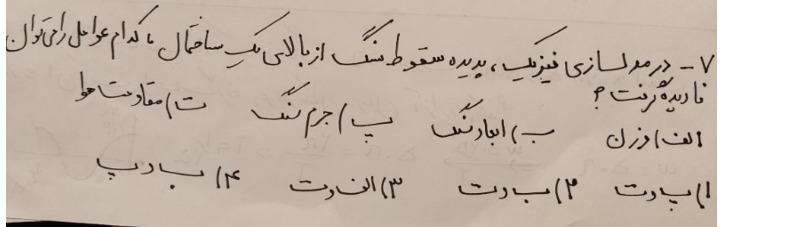 ۷- در مدلسازی فیزیک، پدیده سقوط سنگ از بالای یک ساختمان کدام عوامل را می‌توان
نادیده گرفت؟
الف) وزن ب) ابعاد سنگ پ) جرم سنگ ت) مقاومت هوا
۱) پ و ت ۲) ب و ت ۳) الف و ت ۴) ب و پ